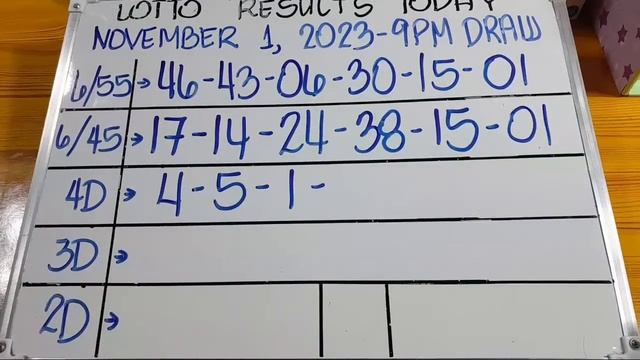 LOTTO RESULTS TODAY
NOVEMBER 1, 2023-9PM DRAW
6/55→46-43-06-30-15-01
6/45→17-14-24-38-15-01
4D→4-5-1-
3D→
2D→